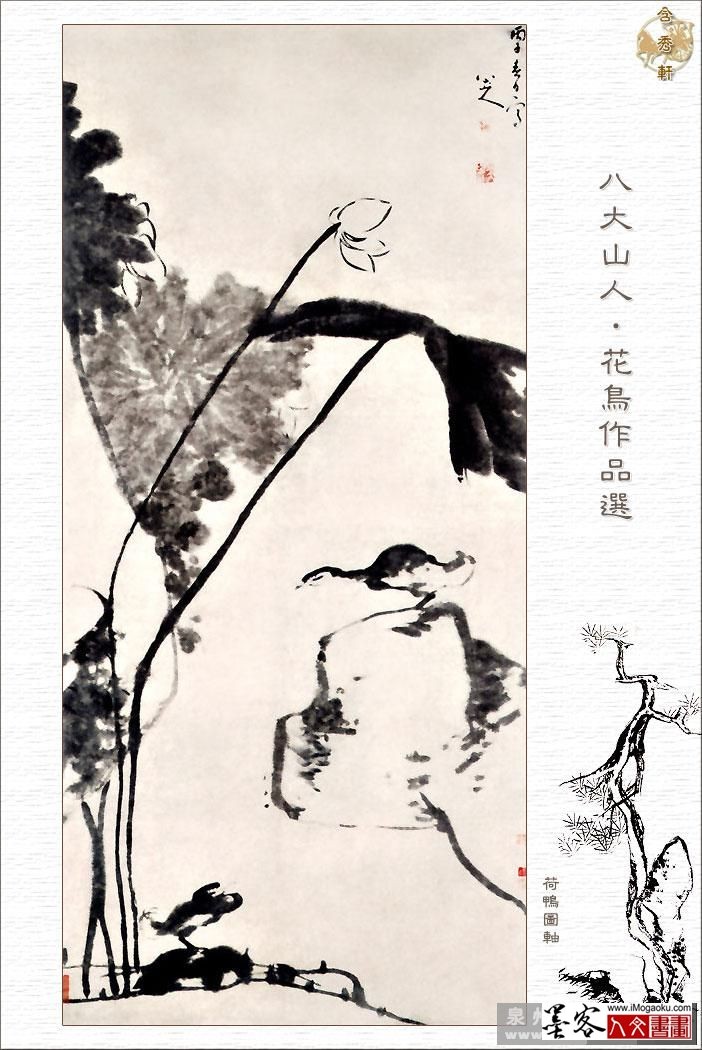 含秀軒
丙子春日寫
八大山人·花鳥作品選
荷鴨圖軸
泉州
www.iMogaoku.com
墨客
人文書畫